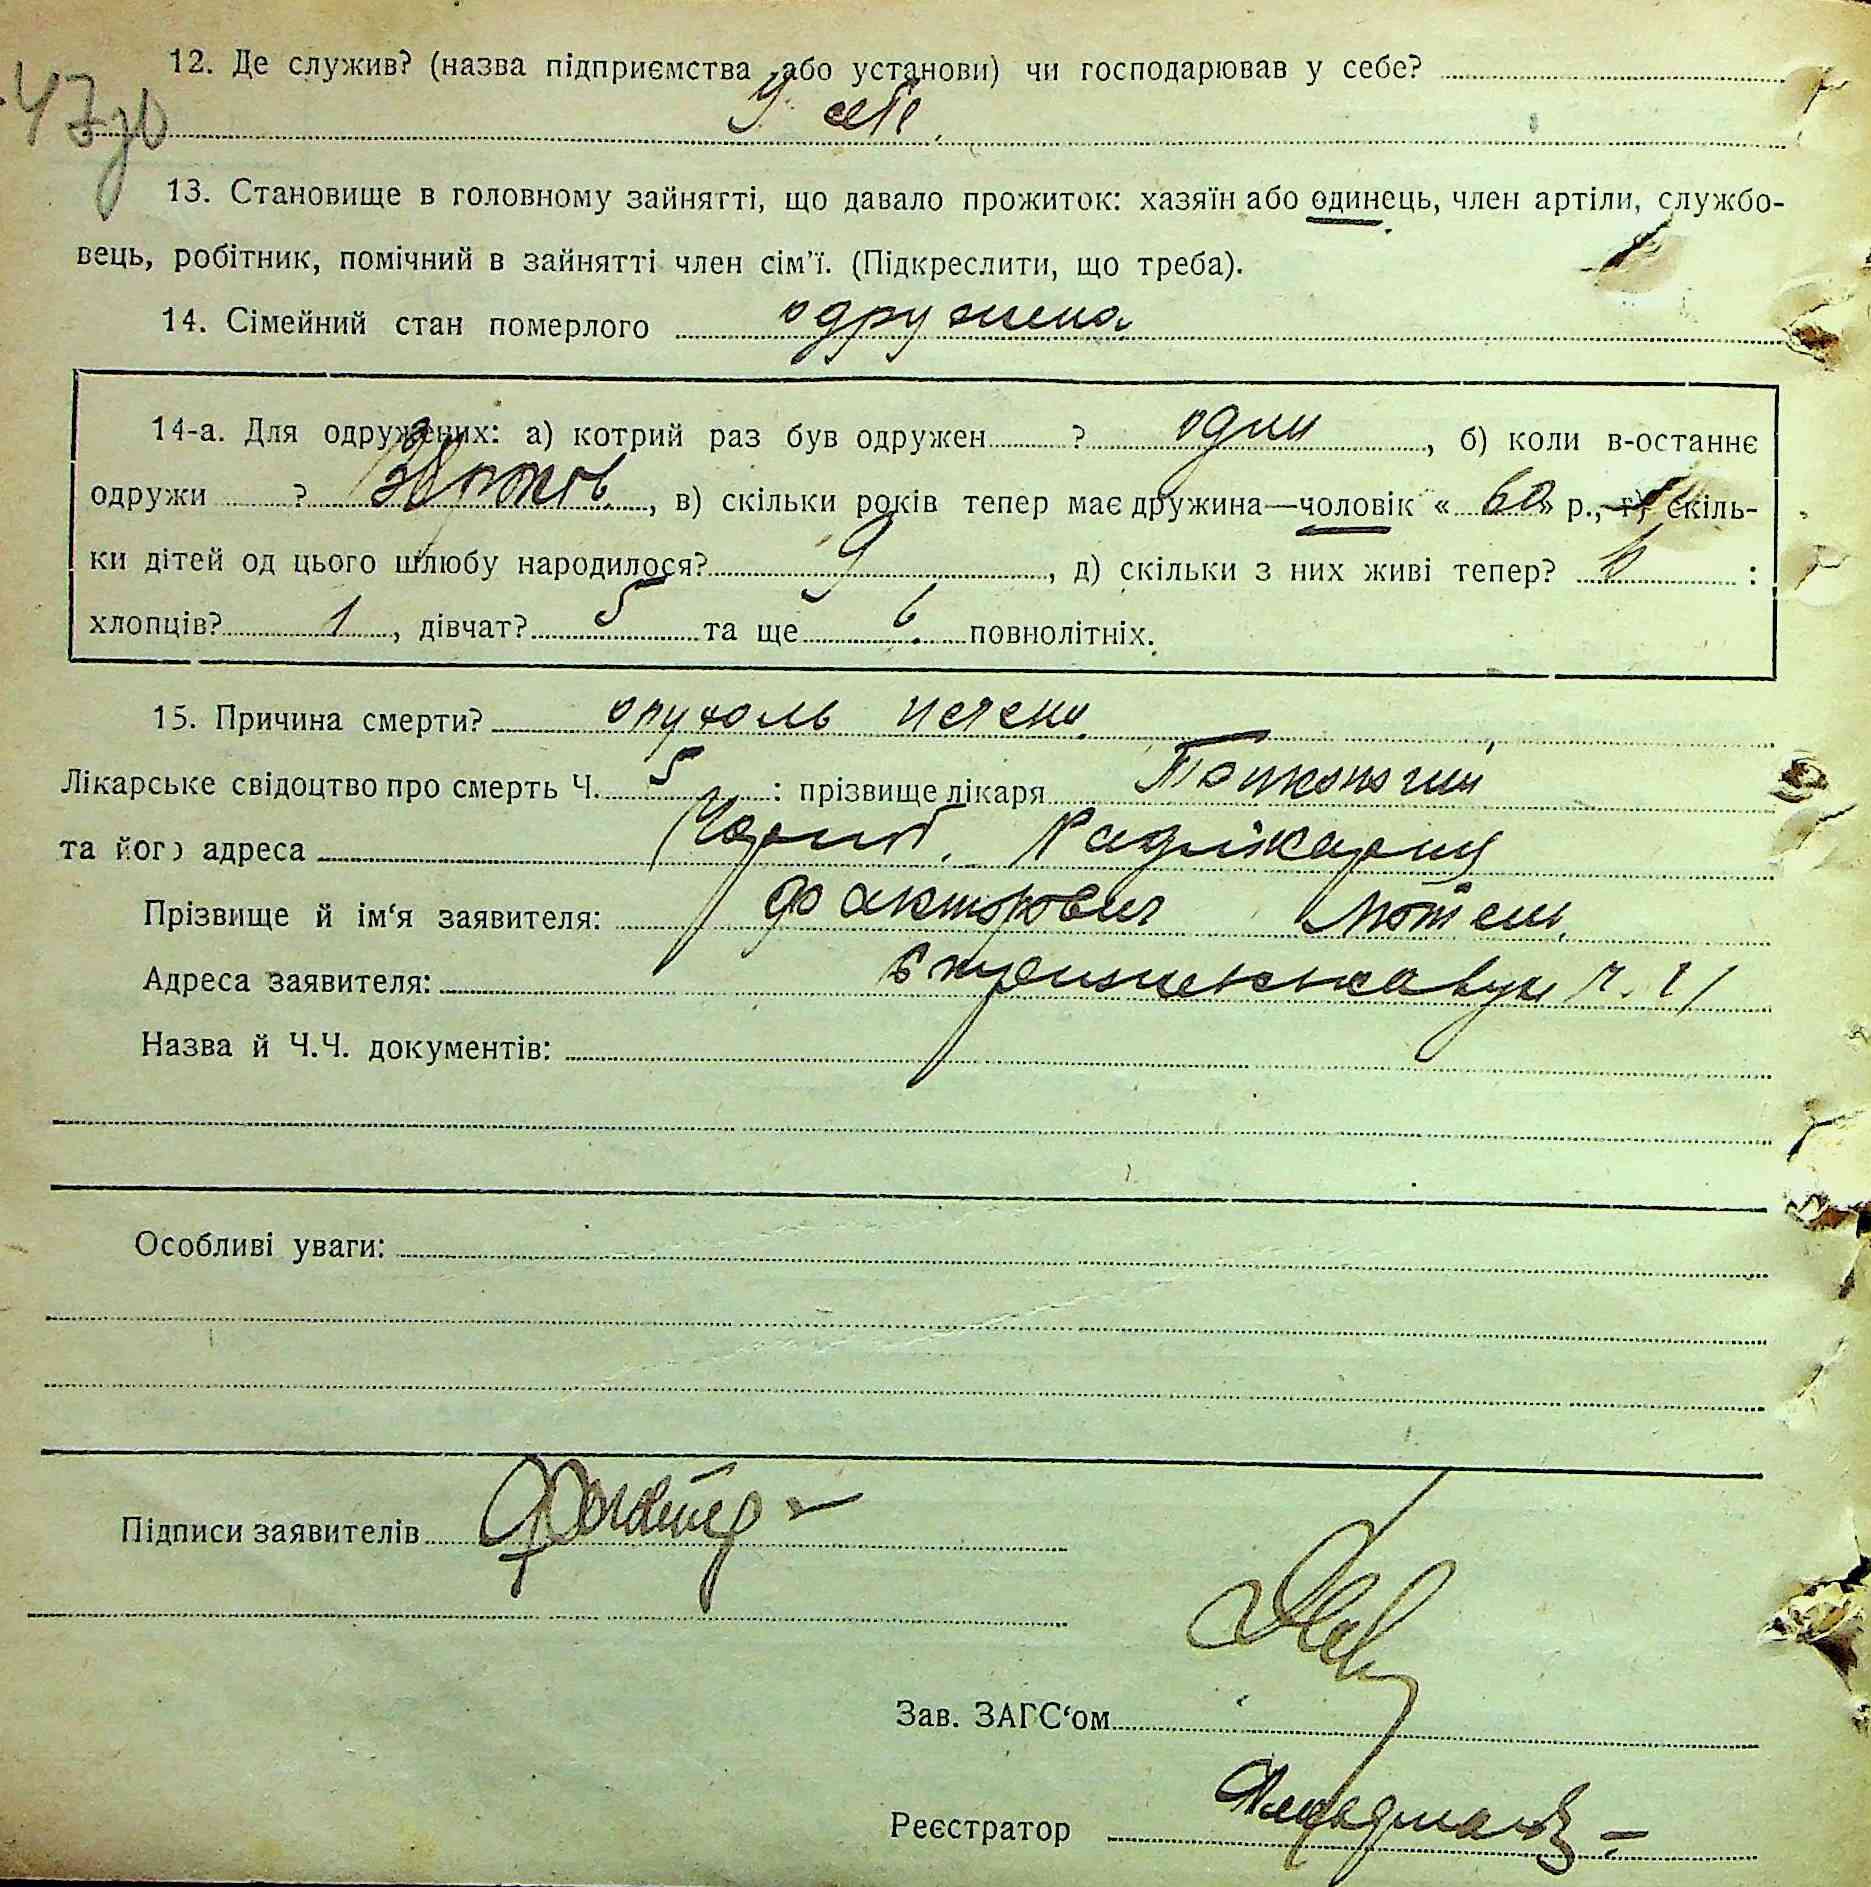 47зв
12. Де служив? (назва підприємства або установи) чи господарював у себе?
У себе.
13. Становище в головному зайнятті, що давало прожиток: хазяїн або одинець, член артіли, службо-
вець, робітник, помічний в зайнятті член сім'ї. (Підкреслити, що треба).
14. Сімейний стан померлого одружена
14-а. Для одружених: а) котрий раз був одружен ? один, б) коли в-останнє
одружи ?, в) скільки років тепер має дружина—чоловік « 60 » р., г) скіль-
ки дітей од цього шлюбу народилося? 9, д) скільки з них живі тепер? 6 :
хлопців? 1, дівчат? 5 та ще 6 повнолітніх.
15. Причина смерти? опухоль печени
Лікарське свідоцтво про смерть Ч. 5 : прізвище лікаря
та його адреса Радлікарня
Прізвище й ім'я заявителя: Факторович Мотель
Адреса заявителя: вул ч.
Назва й Ч.Ч. документів:
Особливі уваги:
Підписи заявителів
Зав. ЗАГС'ом
Реєстратор